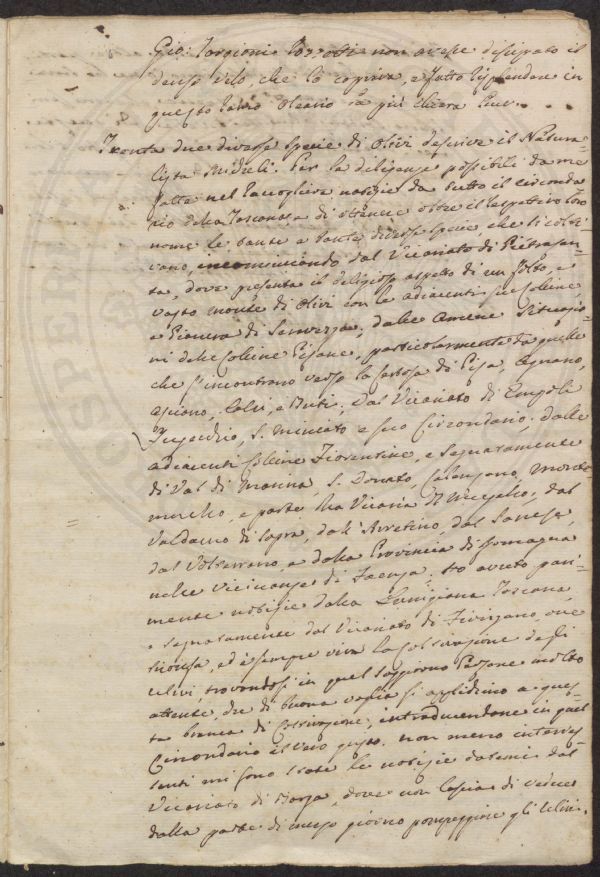 Gio: Targioni Tozzetti non avesse dissipato il
denso velo, che lo copriva, e fatto risplendere in
questo ramo Oleario la più chiara luce.
Trenta due diverse specie di Olivi descrive il Natura=
lista Micheli. Per la diligenze possibili da me
fatte nel raccogliere notizie da tutto il circonda
rio della Toscana, e di ottenere oltre il rispettivo loro
nome le tante e tante diverse specie, che si colti=
vano, incominciando dal Vicariato di Pietrasan=
ta, dove presenta il delizioso aspetto di un folto, e
vasto monte di Olivi con le adiacenti sue colline,
e Pianura di Seravezza; dalle amene situazio=
ni delle Colline Pisane, particolarmente da quelle
che s'incontrano verso la Certosa di Pisa, Agnano,
Asciano, Calci, e Buti; dal Vicariato di Empoli
Fucecchio, S. Miniato e suo Circondario; dalle
adiacenti Colline Fiorentine, e segnatamente
di Val di Marina, S. Donato, Calenzano, Monte
murlo, e parte della Vicaria di Mugello, dal
Valdarno di sopra, dall'Aretino, dal Sanese,
dal Volterrano, e dalla Provincia di Romagna
nelle vicinanze di Faenza; ho avuto pari=
mente notizie dalla Lunigiana Toscana,
e segnatamente dal Vicariato di Fivizzano, ove
trionfa, ed è sempre viva la coltivazione degli
Ulivi, trovandosi in quel soggiorno Persone molto
attente, che di buona voglia si applicano a ques=
ta branca di Coltivazione, introducendone in quel
Circondario il vero gusto. Non meno interes=
santi mi sono state le notizie datemi dal
Vicariato di Barga, dove non lascian di vedersi
dalla parte di mezzo giorno pompeggiare gli Ulivi.